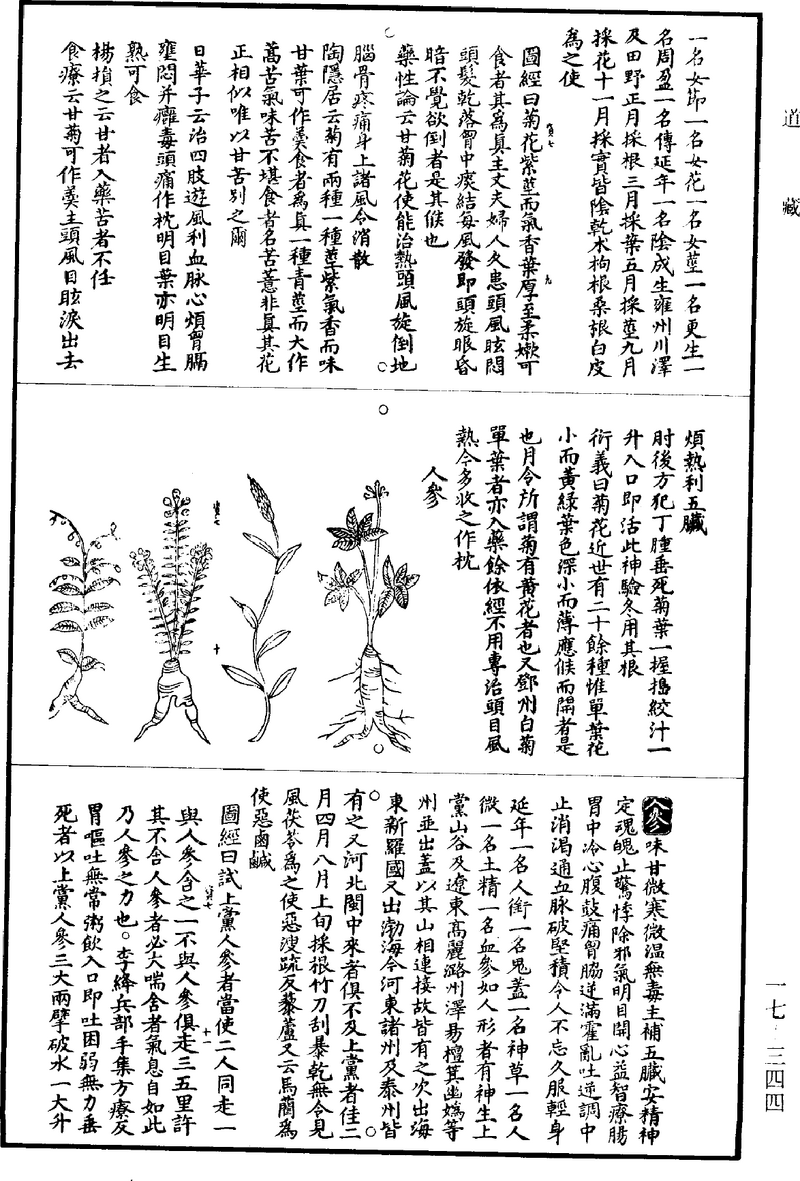 道藏
一名女節一名女花一名女莖一名更生一
名周盈一名傅延年一名陰成生雍州川澤
及田野正月採根三月採葉五月採莖九月
採花十一月採實皆陰乾朮枸根桑根白皮
為之使
圖經曰菊花紫莖而氣香葉厚至柔嫩可
食者其為真主丈夫婦人久患頭風眩悶
頭髮乾落胷中痰結每風發即頭旋眼昏
暗不覺欲倒者是其候也
藥性論云甘菊花使能治熱頭風旋倒地
腦骨疼痛身上諸風令消散
陶隱居云菊有兩種一種莖紫氣香而味
甘葉可作羹食者為真一種青莖而大作
蒿苦氣味苦不堪食者名苦薏非真其花
正相似唯以甘苦別之爾
日華子云治四肢遊風利血脉心煩胷膈
壅悶并癰毒頭痛作枕明目葉亦明目生
熟可食
楊損之云甘者入藥苦者不任
食療云甘菊可作羹主頭風目眩淚出去
煩熱利五臟
肘後方犯丁腫垂死菊葉一握搗絞汁一
升入口即活此神驗冬用其根
衍義曰菊花近世有二十餘種惟單葉花
小而黃綠葉色深小而薄應候而開者是
也月令所謂菊有黃花者也又鄧州白菊
單葉者亦入藥餘依經不用專治頭目風
熱今多收之作枕
人參
人參味甘微寒微溫無毒主補五臟安精神
定魂魄止驚悸除邪氣明目開心益智療腸
胃中冷心腹鼓痛胷脇逆滿霍亂吐逆調中
止消渴通血脉破堅積令人不忘久服輕身
延年一名人銜一名鬼蓋一名神草一名人
微一名土精一名血參如人形者有神生上
黨山谷及遼東高麗潞州澤易檀箕幽媯等
州並出蓋以其山相連接故皆有之次出海
東新羅國又出渤海今河東諸州及泰州皆
有之又河北閩中來者俱不及上黨者佳二
月四月八月上旬採根竹刀刮暴乾無令見
風茯苓為之使惡溲疏反藜蘆又云馬藺為
使惡鹵鹹
圖經曰試上黨人參者當使二人同走一
與人參含之一不與人參俱走三五里許
其不含人參者必大喘含者氣息自如此
乃人參之力也○李絳兵部手集方療反
胃嘔吐無常粥飲入口即吐困弱無力垂
死者以上黨人參三大兩擘破水一大升
一七·三四四